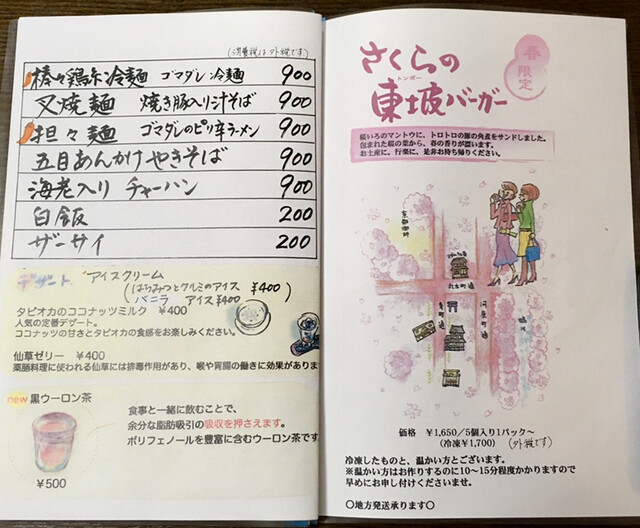 (消費税は外税です)
棒々鶏糸冷麺 ゴマダレ冷麺 900
叉焼麺 焼き豚入り汁そば 900
担々麺 ゴマダレのピリ辛ラーメン 900
五目あんかけやきそば 900
海老入り チャーハン 900
白飯 200
ザーサイ 200
デザート
アイスクリーム
(はちみつとクルミのアイス ¥400)
バニラ アイス ¥400
タピオカのココナッツミルク ¥400
人気の定番デザート。
ココナッツの甘さとタピオカの食感をお楽しみください。
仙草ゼリー ¥400
薬膳料理に使われる仙草には排毒作用があり、喉や胃腸の働きに効果があります
new 黒ウーロン茶
食事と一緒に飲むことで、
余分な脂肪吸引の吸収を押さえます。
ポリフェノールを豊富に含むウーロン茶です
¥500
春限定
さくらの
トンポー
東坡バーガー
桜いろのマントウに、トロトロの豚の角煮をサンドしました。
包まれた桜の葉から、春の香りが漂います。
お土産に、行楽に、是非お持ち帰りください。
京都御所
丸太町通
河原町通
鴨川
価格 ¥1,650/5個入り1パック〜
(冷凍¥1,700) (外税です)
冷凍したものと、温かい方とございます。
※温かい方はお作りするのに10〜15分程度かかりますので
早めにお申し付けくださいませ。
〇地方発送承ります〇